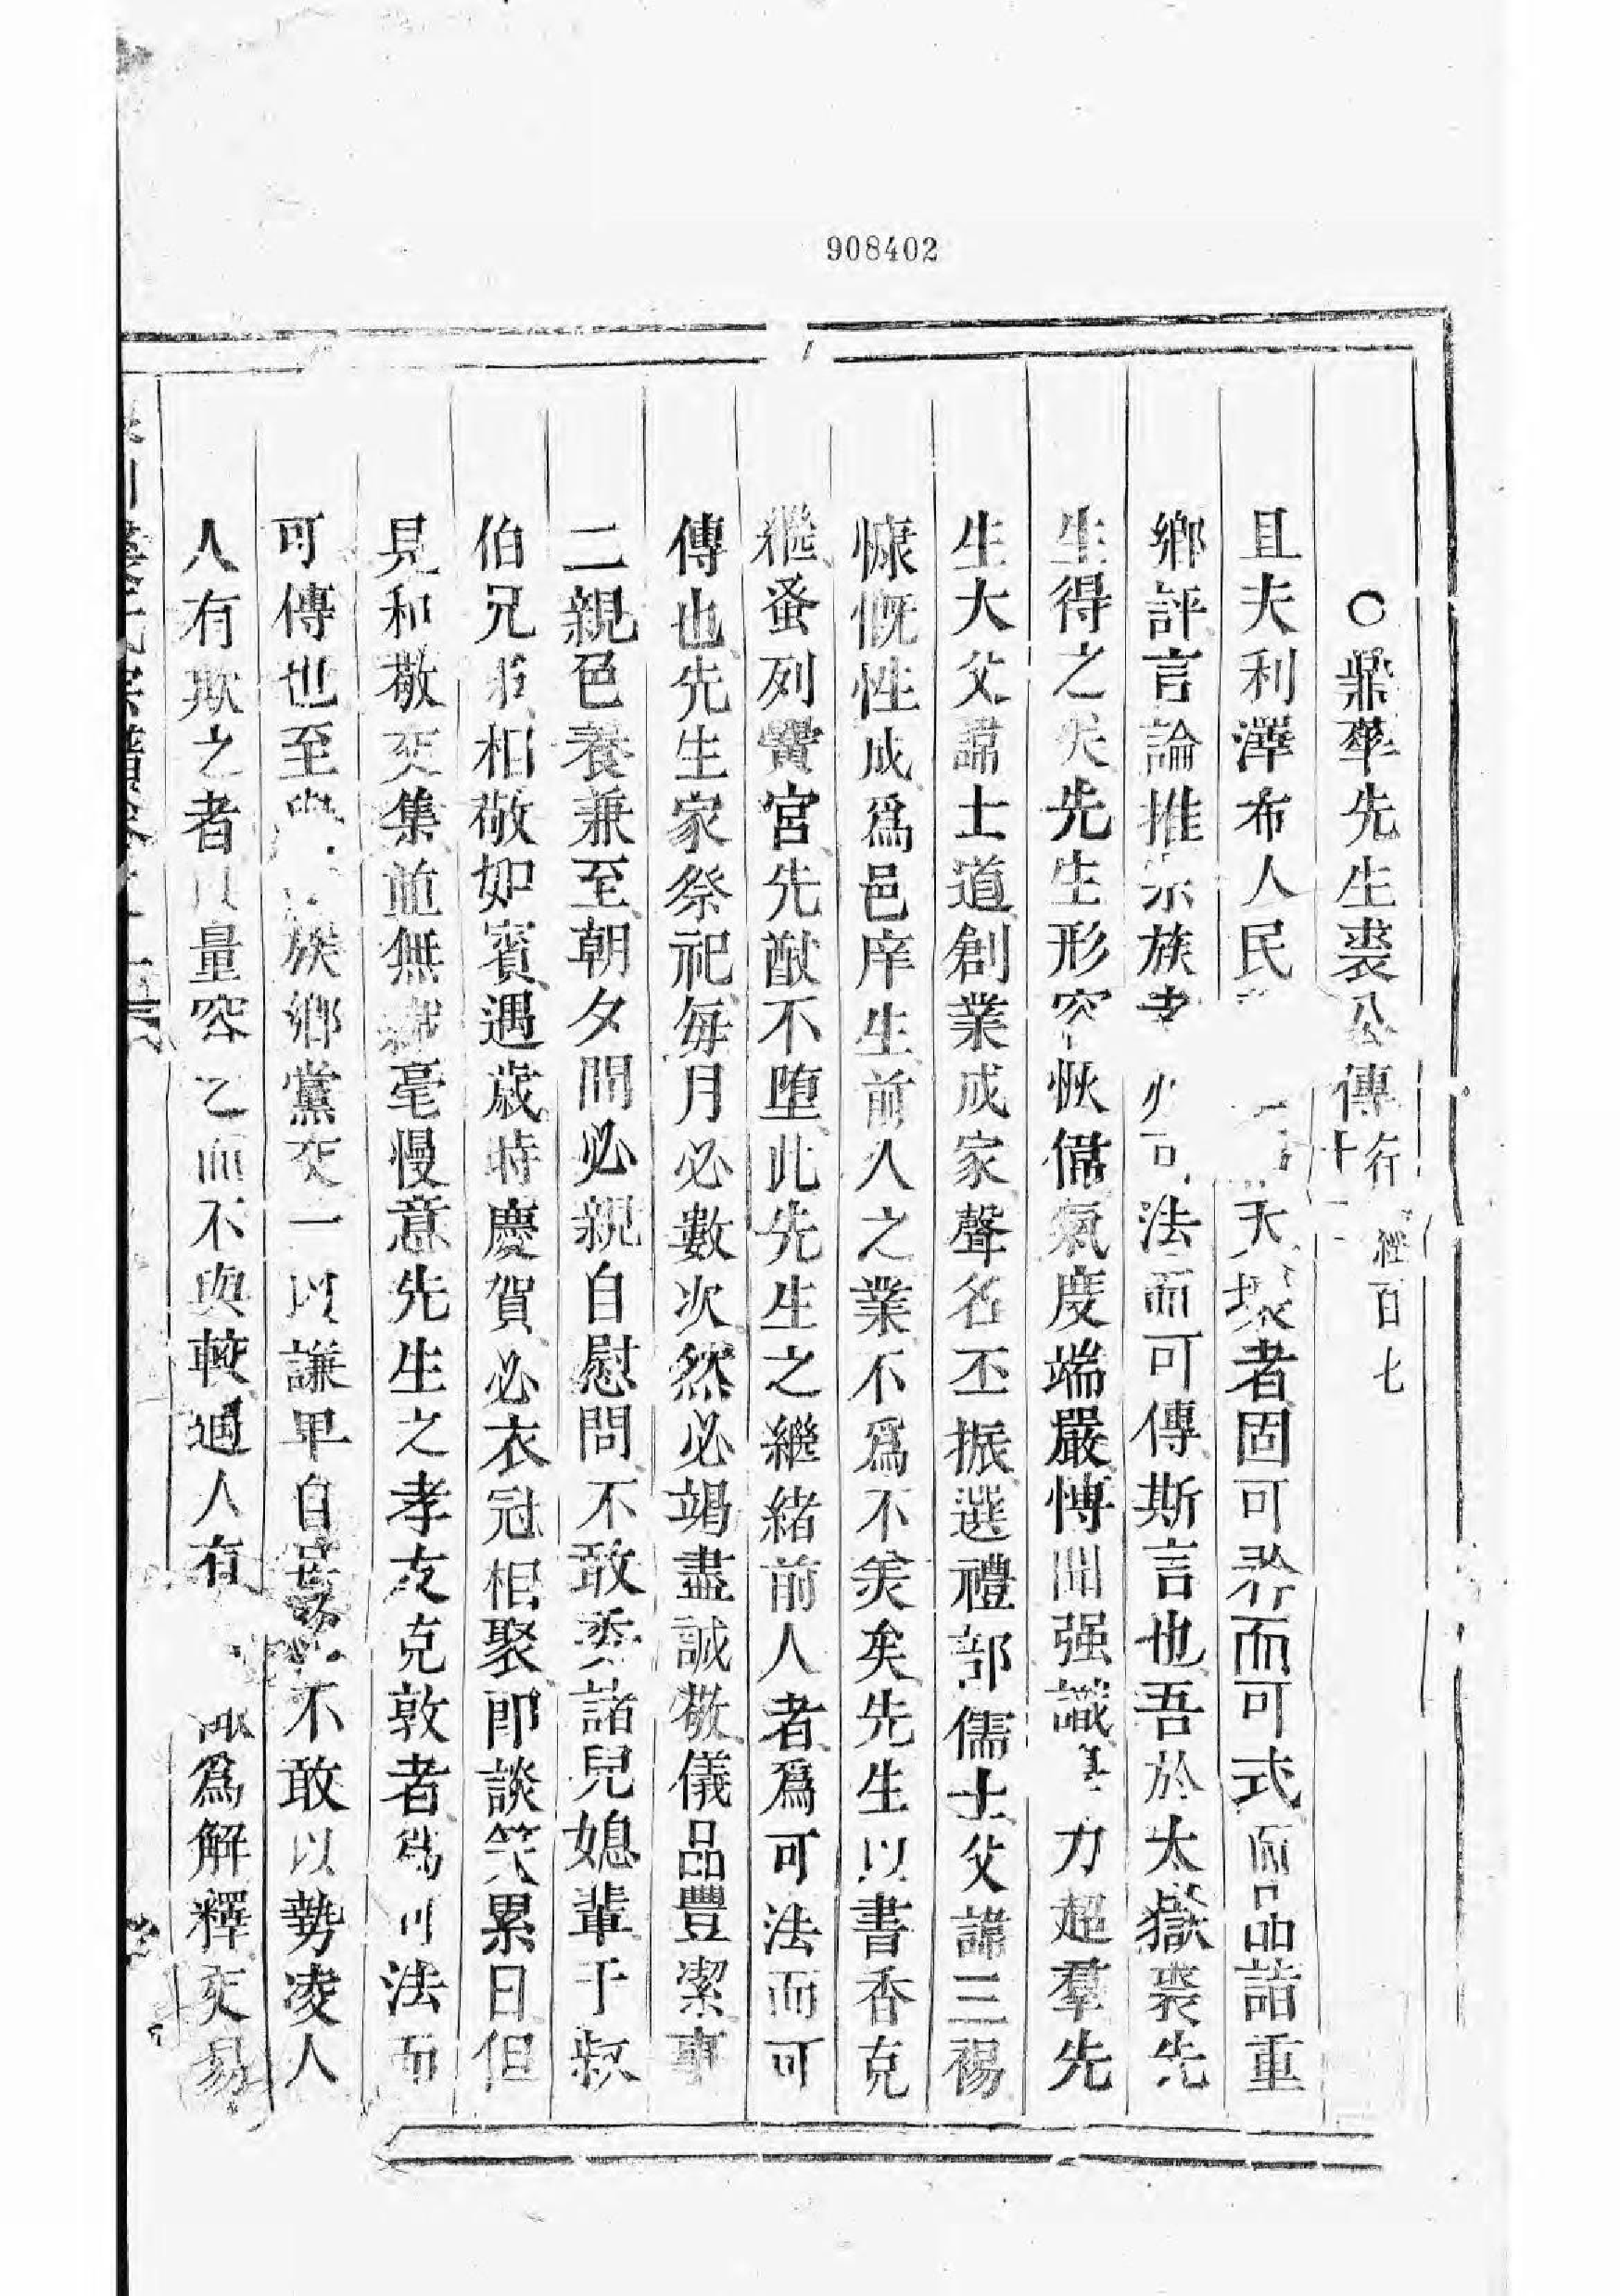 908402
○鼎華先生裘公傳行經百七十一
且夫利澤布人民天壤者固可矜而可式而品詣重
鄉評言論推宗族孝可法而可傳斯言也吾於太嶽裘先
生得之矣先生形容恢偹氣度端嚴博聞强識力超羣先
生大父諱士道創業成家聲名丕振選禮部儒士父諱三裼
慷慨性成爲邑庠生前人之業不爲不羙矣先生以書香克
繼蚤列黌宮先猷不墮此先生之繼緒前人者爲可法而可
傳也先生家祭祀每月必數次然必竭盡誠敬儀品豐潔事
二親色養兼至朝夕間必親自慰問不敢委諸兒媳輩于叔
伯兄弟相敬如賓遇歳時慶賀必衣冠相聚即談笑累日但
見和敬交集並無絲毫慢意先生之孝友克敦者爲可法而
可傳也至宗族鄉黨交一以謙卑自不敢以勢凌人
人有欺之者以量容之而不與較遇人有爲解釋交易